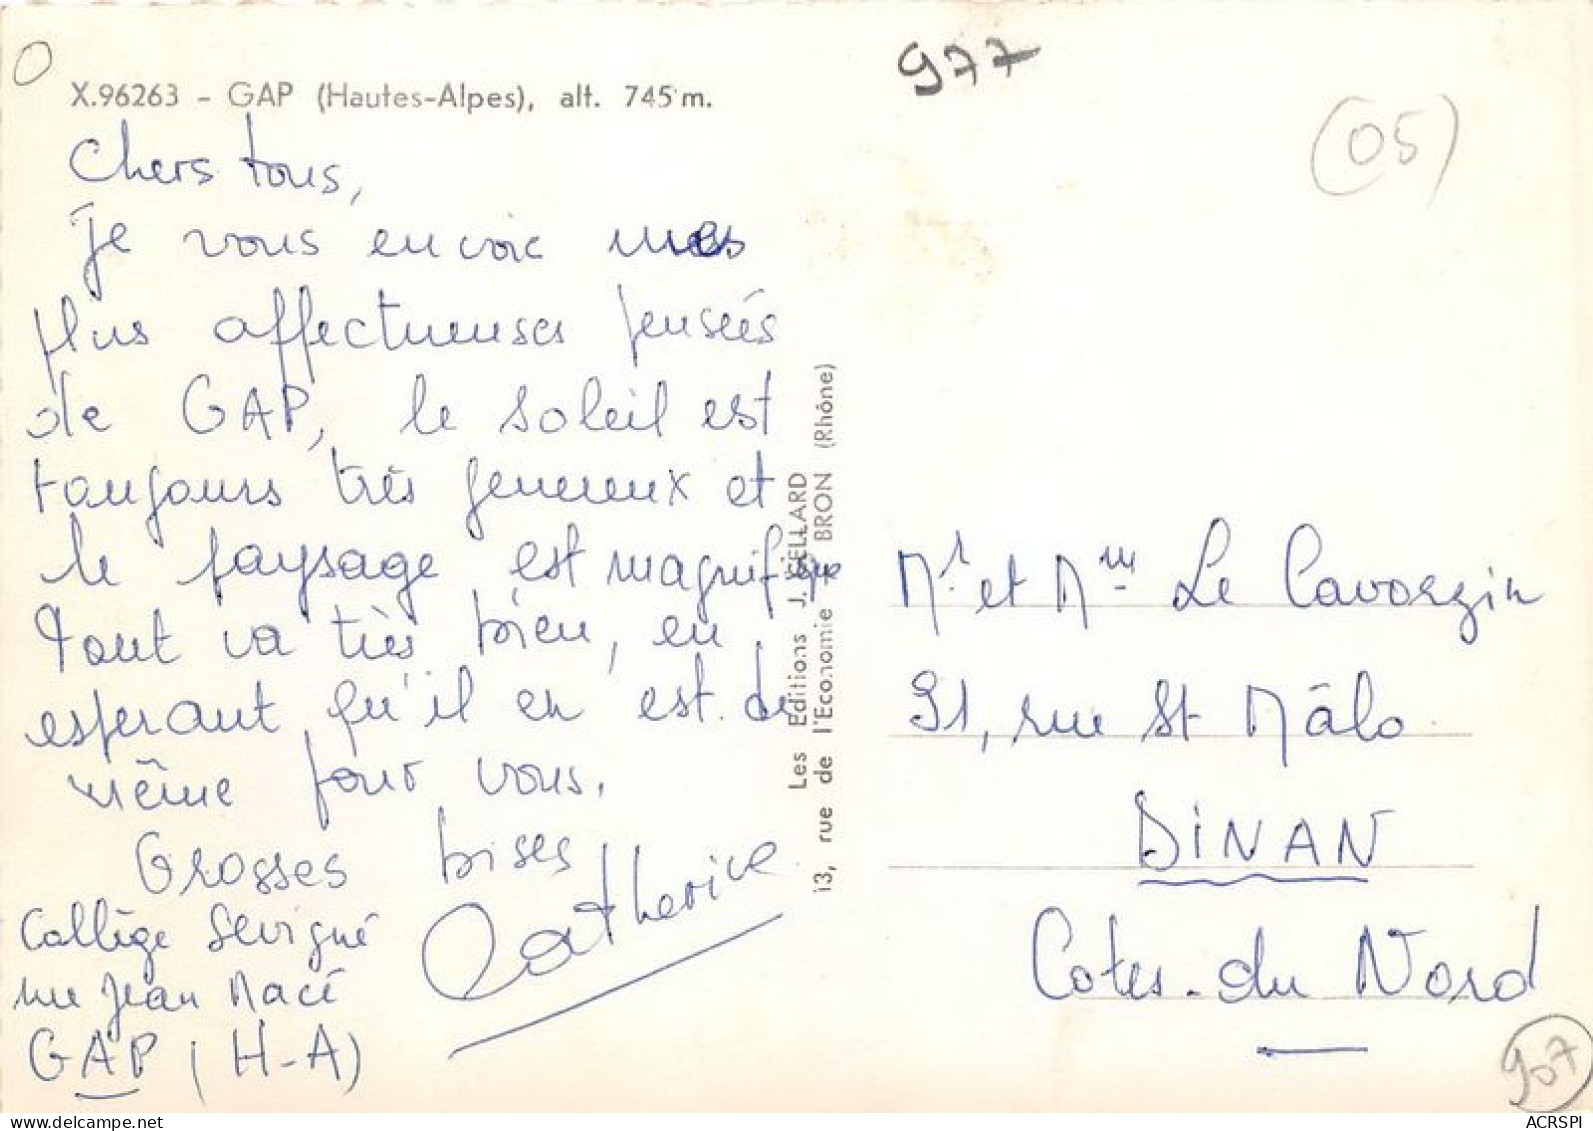 977
X.96263 - GAP (Hautes-Alpes), alt. 745 m.
(05)
Chers tous,
Je vous envoie mes
plus affectueuses pensées
de GAP, le soleil est
toujours très genereux et
le paysage est magnifique
Tout va très bien, en
esperant qu'il en est de
même pour vous.
Grosses bises
Catherine
Collège Sevigné
rue Jean Macé
GAP (H-A)
Les Editions J. CELLARD
13, rue de l'Economie - BRON (Rhône)
Mr. et Mme Le Cavorzin
91, rue St Mâlo
DINAN
Cotes-du Nord
907
ACRSPI